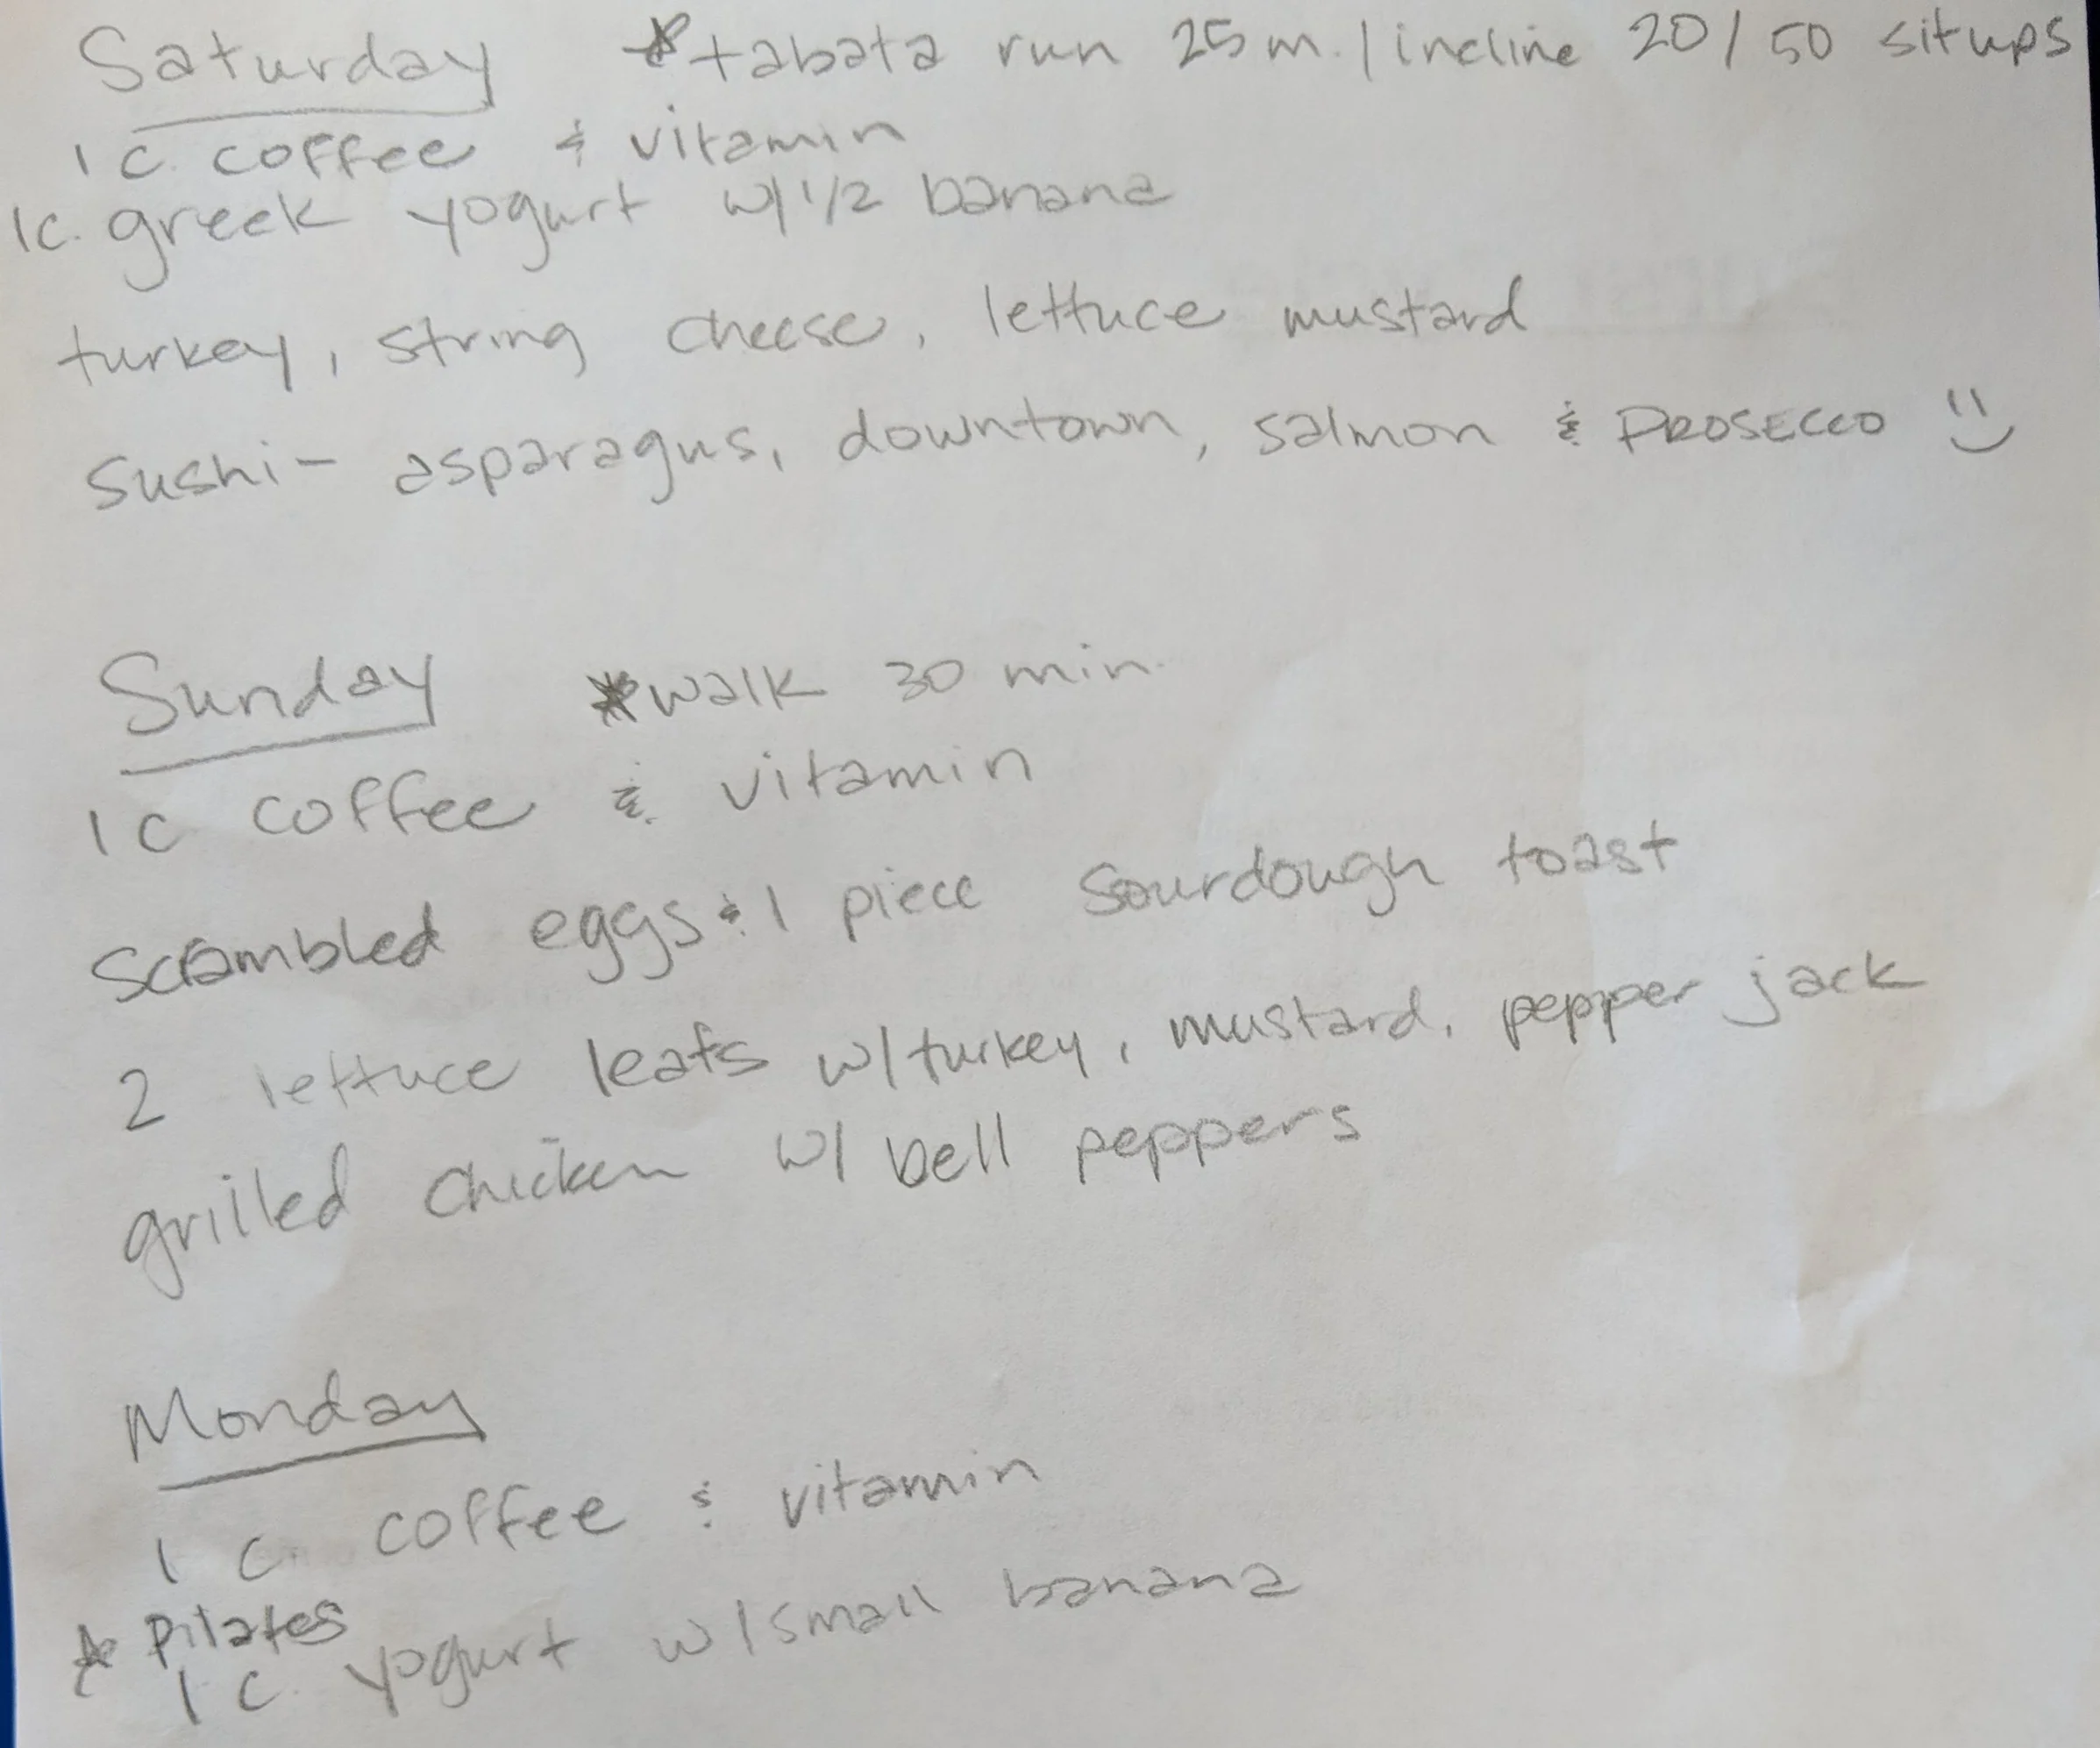 Saturday *tabata run 25 m. / incline 20 / 50 situps
1 c. coffee & vitamin
1c. greek yogurt w/ 1/2 banana
turkey, string cheese, lettuce mustard
Sushi - asparagus, downtown, salmon & PROSECCO :)
Sunday *walk 30 min.
1 c coffee & vitamin
Scrambled eggs & 1 piece sourdough toast
2 lettuce leafs w/ turkey, mustard, pepper jack
grilled chicken w/ bell peppers
Monday
1 c. coffee & vitamin
* Pilates
1 c. yogurt w/ small banana